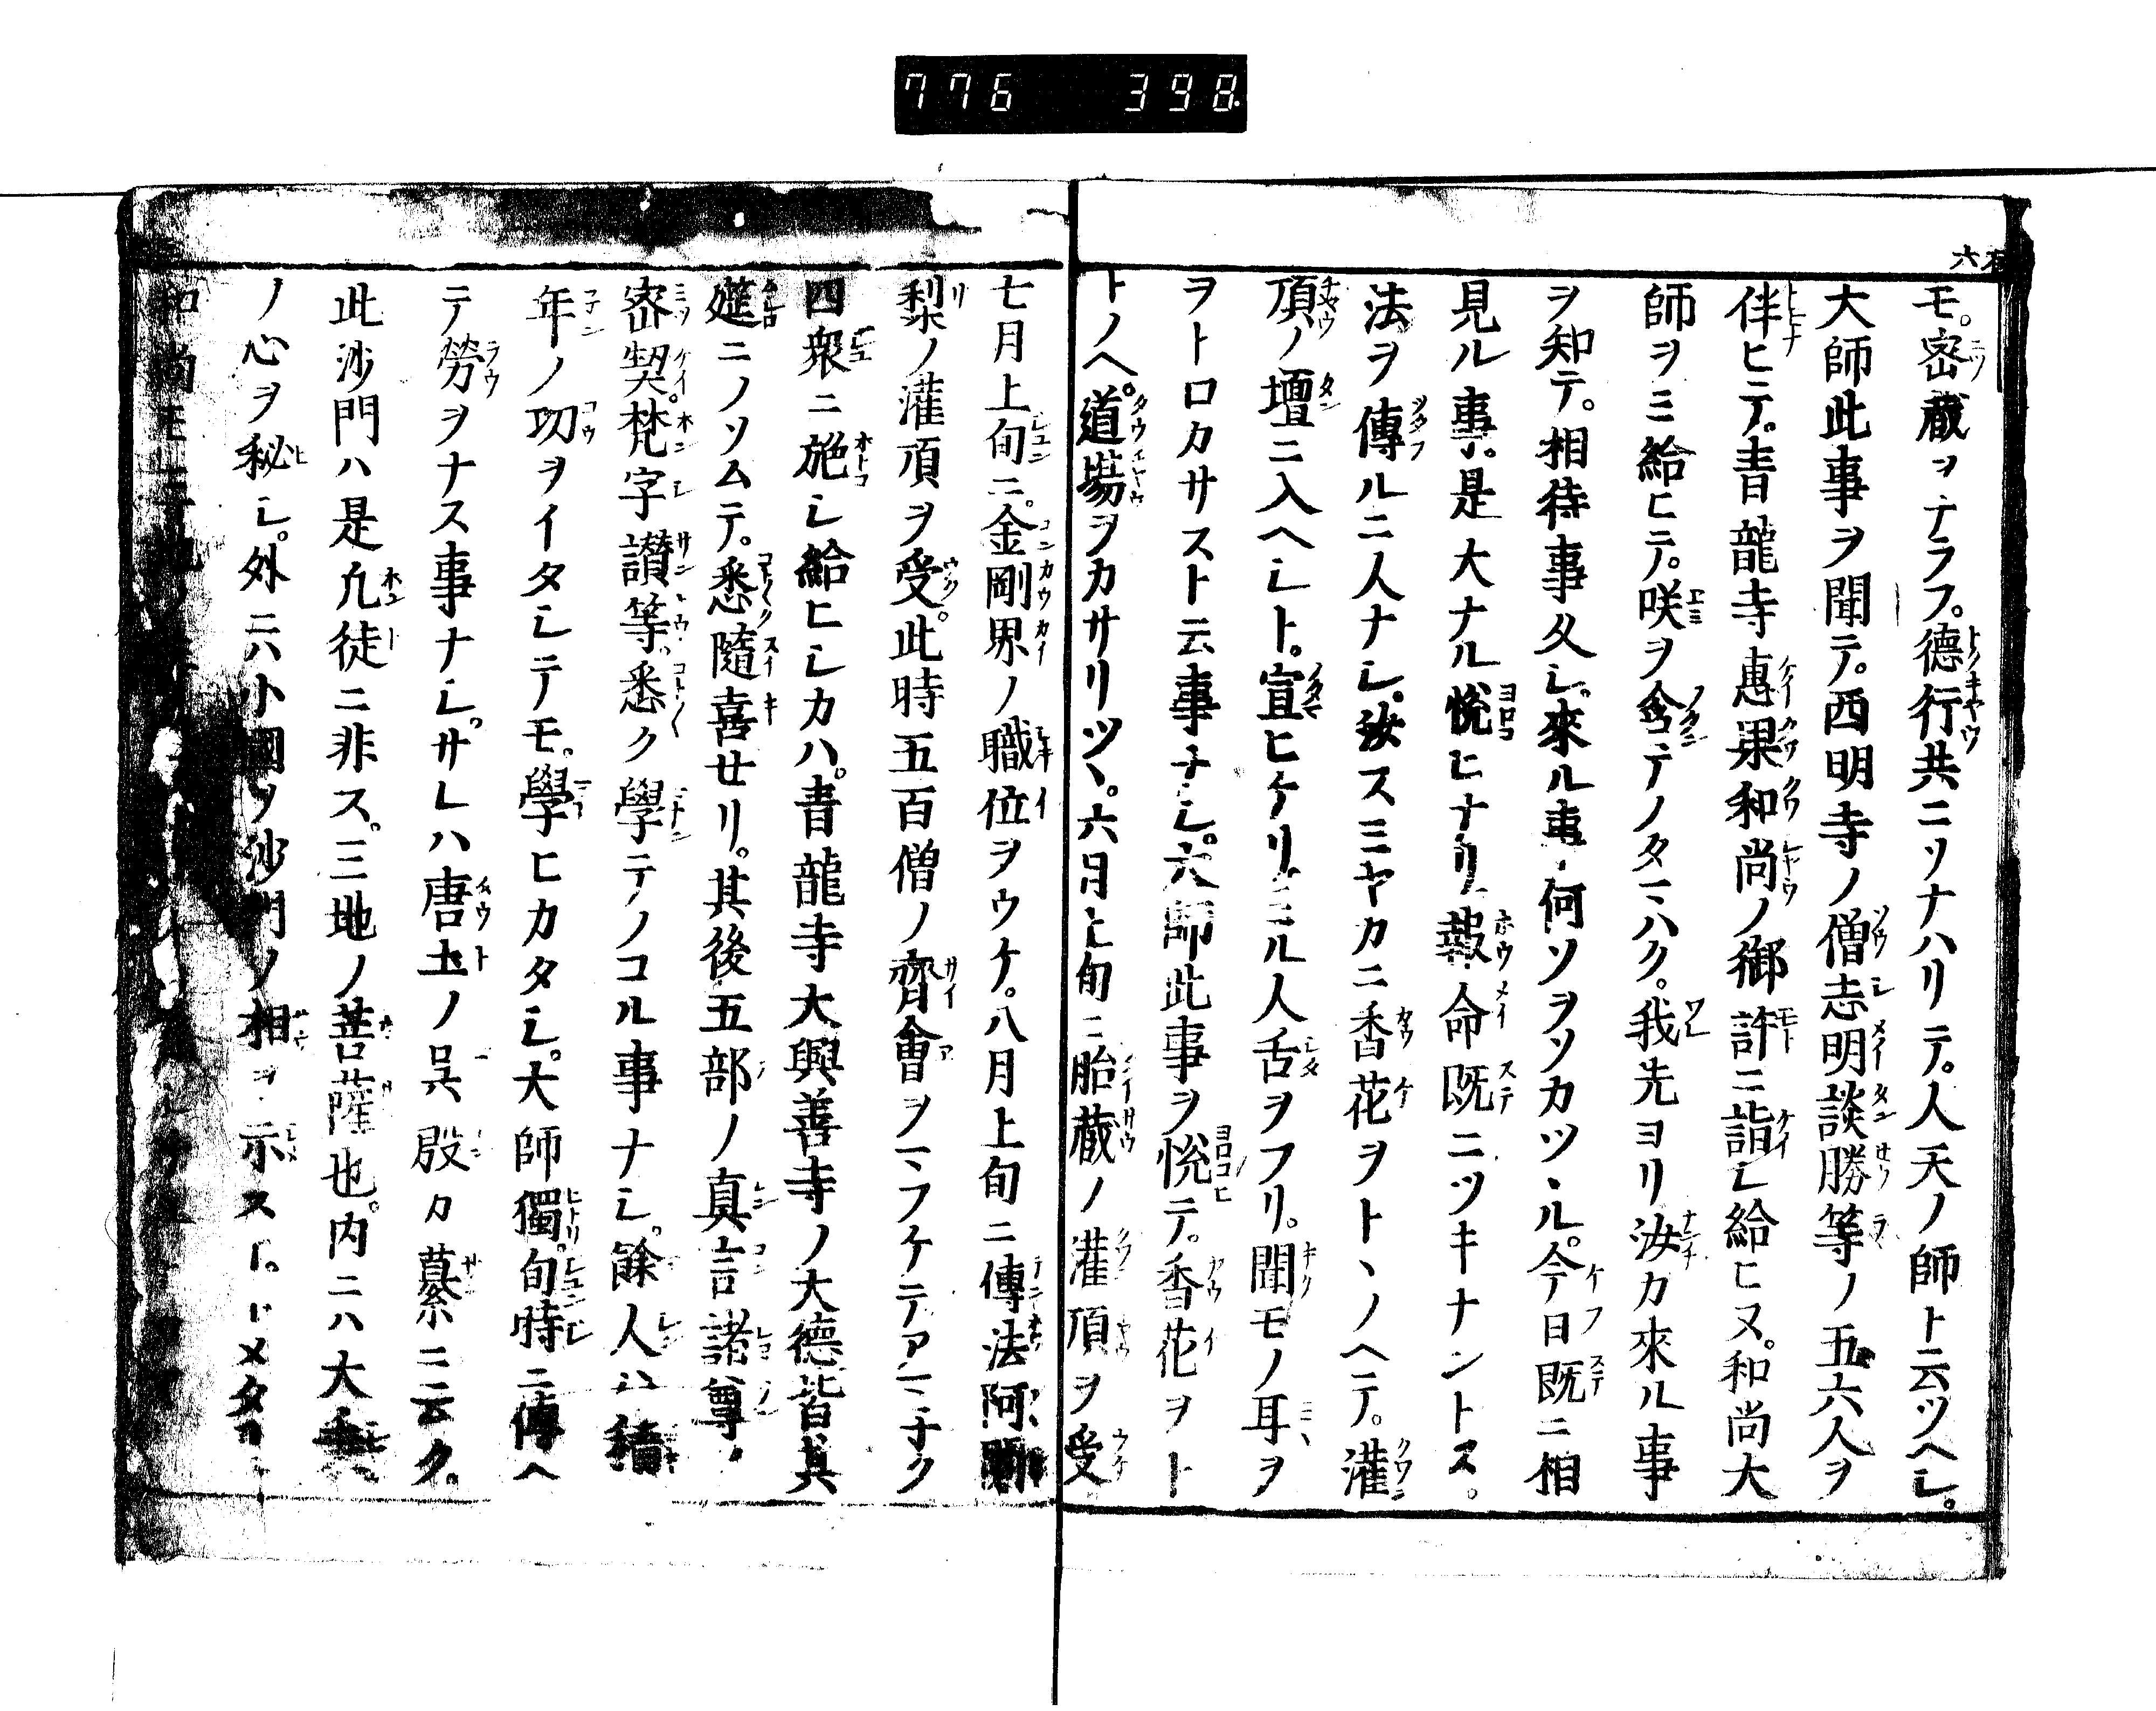 776 398
六
モ。密蔵ヲナラフ。德行共ニソナハリテ。人天ノ師ト云ツヘシ。
大師此事ヲ聞テ。西明寺ノ僧志明談勝等ノ五六人ヲ
伴ヒテ。青龍寺惠果和尚ノ御許ニ詣シ給ヒヌ。和尚大
師ヲミ給ヒテ。咲ヲ含テノタマハク。我先ヨリ汝カ來ル事
ヲ知テ。相待事久シ。來ル事何ソヲソカツヽル。今日既ニ相
見ル事。是大ナル悦ヒナリ。報命既ニツキナントス。
法ヲ傳ルニ人ナシ。汝スミヤカニ香花ヲトヽノヘテ。灌
頂ノ壇ニ入ヘシト。宣ヒケリ。ミル人舌ヲフリ。聞モノ耳ヲ
ヲトロカサスト云事ナシ。大師此事ヲ悦テ。香花ヲト
トノヘ。道場ヲカサリツヽ。六月上旬ニ胎蔵ノ灌頂ヲ受
七月上旬ニ。金剛界ノ職位ヲウケ。八月上旬ニ傳法阿闍
梨ノ灌頂ヲ受。此時五百僧ノ齊會ヲマフケテアマナク
四衆ニ施シ給ヒシカハ。青龍寺大興善寺ノ大德皆其
筵ニノソムテ。悉隨喜セリ。其後五部ノ真言諸尊ノ
密契。梵字讃等。悉ク學テノコル事ナシ。餘人ハ積
年ノ功ヲイタシテモ。學ヒカタシ。大師獨。旬時ニ傳ヘ
テ勞ヲナス事ナシ。サレハ唐土ノ呉殷カ纂ニ云ク。
此沙門ハ是凢徒ニ非ス。三地ノ菩薩也。内ニハ大乘
ノ心ヲ秘シ。外ニハ小國ノ沙門ノ相ヲ示スト。ホメタリ
和尚モ